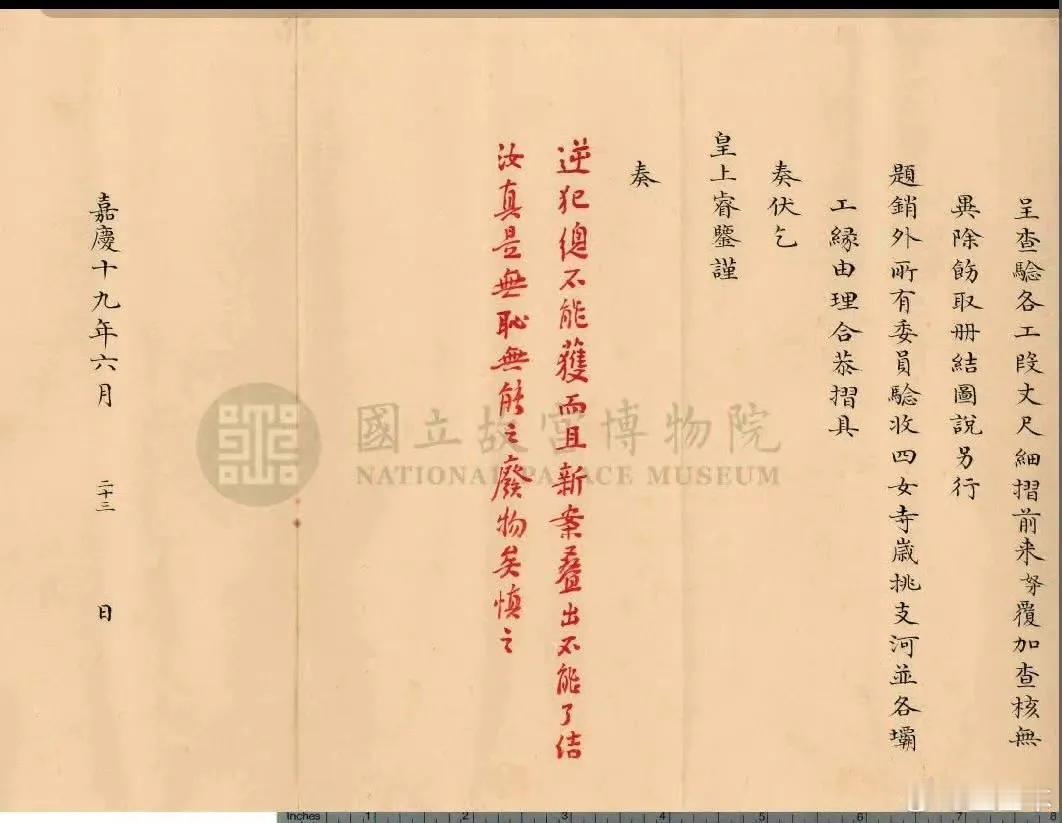 呈查驗各工段丈尺細摺前來奴覆加查核無
異除飭取册結圖說另行
題銷外所有委員驗收四女寺歲挑支河並各壩
工緣由理合恭摺具
奏伏乞
皇上睿鑒謹
奏
逆犯總不能獲而且新案疊出不能了结
汝真是無恥無能之廢物矣慎之
嘉慶十九年六月 二十三 日
國立故宮博物院
NATIONAL PALACE MUSEUM
Inches 1 2 3 4 5 6 7 8